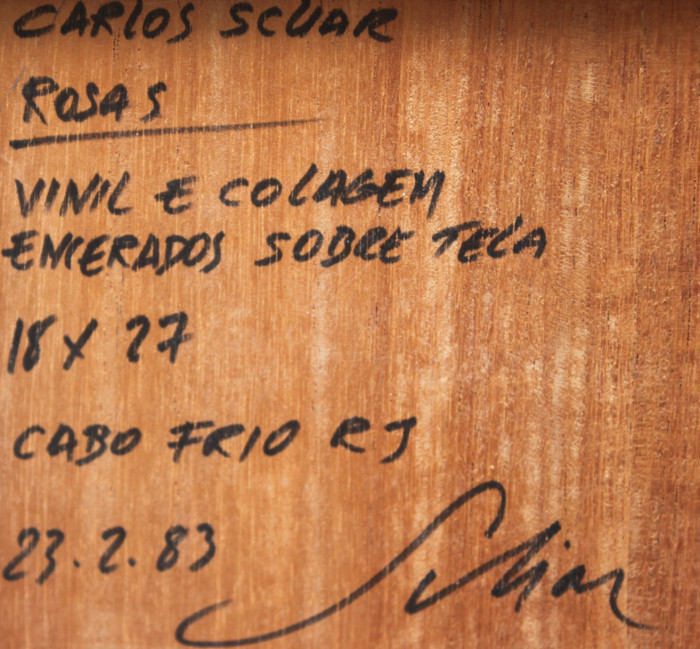 CARLOS SCLIAR
ROSAS
VINIL E COLAGEM
ENCERADOS SOBRE TELA
18 X 27
CABO FRIO RJ
23.2.83
Scliar